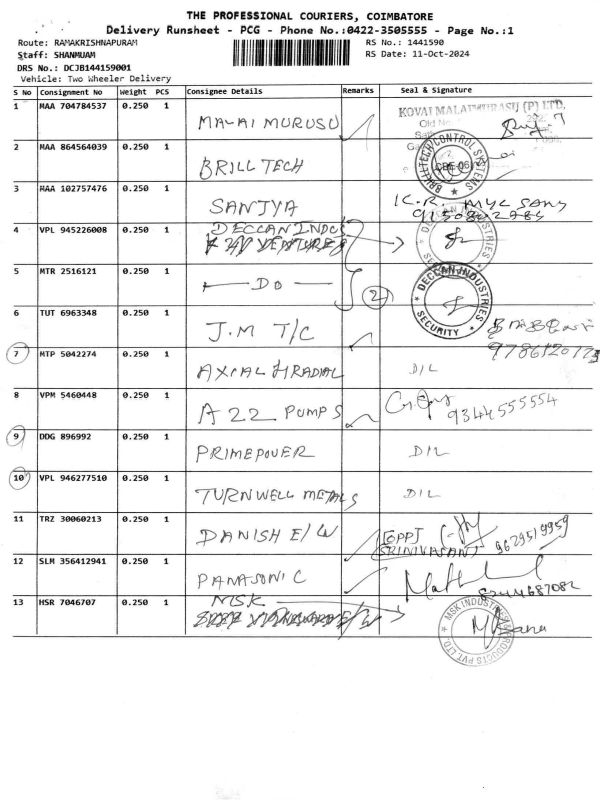 THE PROFESSIONAL COURIERS, COIMBATORE
Delivery Runsheet - PCG - Phone No.:0422-3505555 - Page No.:1
Route: RAMAKRISHNAPURAM
RS No.: 1441590
Staff: SHANMUAM
RS Date: 11-Oct-2024
DRS No.: DCJB144159001
Vehicle: Two Wheeler Delivery
S No Consignment No Weight PCS Consignee Details Remarks Seal & Signature
1 MAA 704784537 0.250 1 MALAI MURUSU KOVAI MALAIMURASU (P) LTD,
Old No
2 MAA 864564039 0.250 1 BRILL TECH BRILLTECH CONTROL SYSTEMS CBE-06
3 MAA 102757476 0.250 1 SANJYA K.R.
4 VPL 945226008 0.250 1 DECCAN INDUS DECCAN INDUSTRIES
5 MTR 2516121 0.250 1 DO 2 DECCAN INDUSTRIES SECURITY
6 TUT 6963348 0.250 1 J.M T/C
7 MTP 5042274 0.250 1 AXIAL H RADIAL D/L
8 VPM 5460448 0.250 1 A 22 PUMPS 9344555554
9 DDG 896992 0.250 1 PRIMEPOWER D/L
10 VPL 946277510 0.250 1 TURNWELL METALS D/L
11 TRZ 30060213 0.250 1 DANISH E/W SRINIVASAN 9629519959
12 SLM 356412941 0.250 1 PANASONIC 8244687082
13 HSR 7046707 0.250 1 MSK MSK INDUSTRIAL PRODUCTS PVT. LTD.